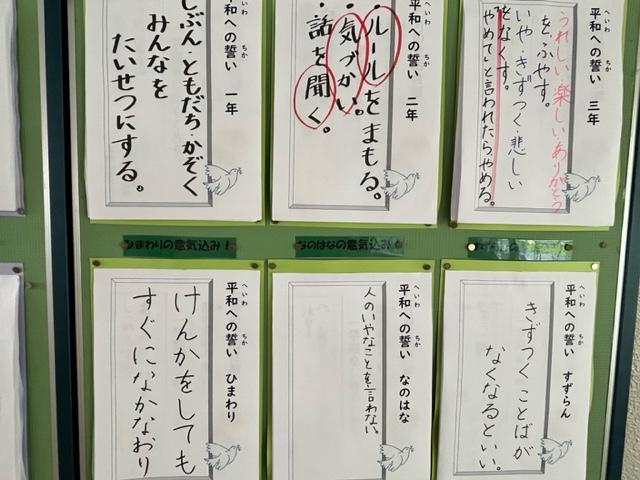 平和への誓い 一年
じぶん・ともだち・かぞく
みんなを
たいせつにする。
平和への誓い 二年
・ルールをまもる。
・気づかい。
・話を聞く。
平和への誓い 三年
うれしい・楽しい・ありがとう
をふやす。
いや・きずつく・悲しい
をなくす。
やめてと言われたらやめる。
ひまわりの意気込み!
なのはなの意気込み
平和への誓い ひまわり
けんかをしても
すぐになかなおり
平和への誓い なのはな
人のいやなことを言わない。
平和への誓い すずらん
きずつくことばが
なくなるといい。